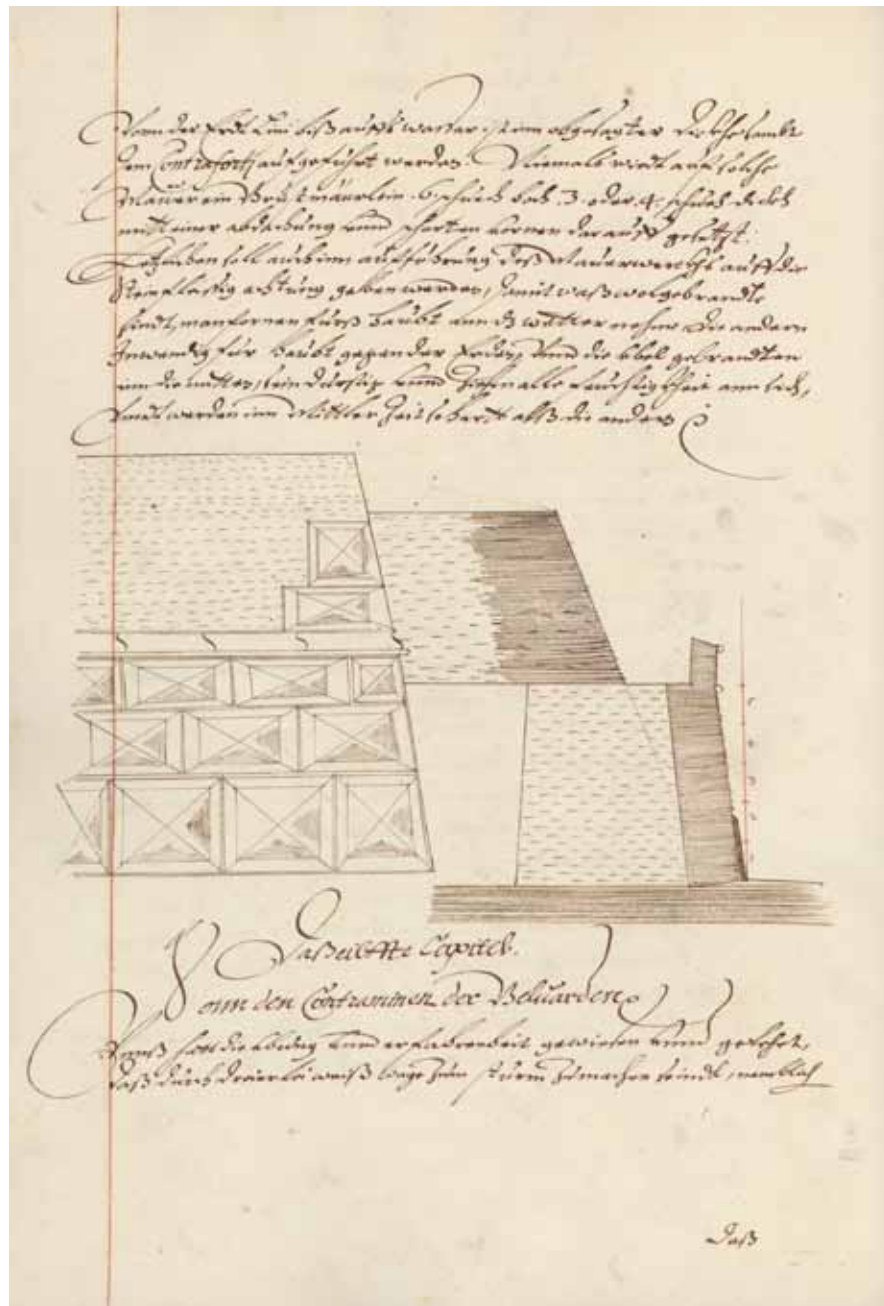 Vonn der Erdt ann biß auffs wasser inn obgesagter dickhe sambt
dem Contraforti auffgeführt werden. Niemals wirdt auf solche
Mauer ein Brustmäurlein 6 schuech hoch 3. oder 4. schuch dickh
mitt einer abdachung unnd scharten vornen darauff gesetzt.
soll auch inn aufführung deß Mauerwerckhs auff die
stein fleissig achtung geben werden, damit waß wolgebrandte
sindt, man fornen fürß haubt ann dz wetter neme die andern
Inwendig für haubt gegen der Erden, Unnd die übel gebrandten
inn die mitten, sein durstig unnd ziehen alle feuchtigkheit ann sich,
werden inn mittler Zeit so hert alß die andern
Daß eilffte Capitel.
Vonn den Contraminen der Beluarden
Unnß hatt die übung unnd erfahrenheit gewisen unnd gelehrt,
daß durch dreierlei weiß wege zum sturm zumachen seindt, nemblich
Daß